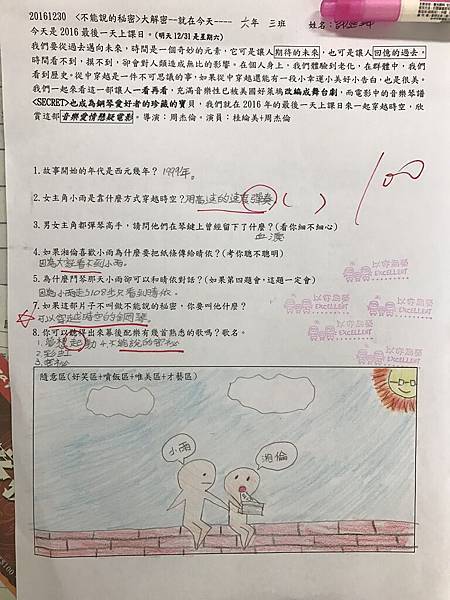 20161230 <不能說的秘密>大解密--就在今天---- 六年 三班 姓名:
今天是2016最後一天上課日。(明天12/31是星期六)
我們要從過去邁向未來,時間是一個奇妙的元素,它可是讓人期待的未來,也可是讓人回憶的過去,
時間看不到,摸不到,卻會對人類造成無比的影響。在個人身上,我們體驗到老化,在群體中,我們
看到歷史。從中穿越是一件不可思議的事,如果從中穿越還能有一段小幸運小美好小告白,也是很美。
我們一起來看這一部讓人一看再看,充滿音樂性也被美國好萊塢改編成舞台劇,而電影中的音樂琴譜
<SECRET>也成為鋼琴愛好者的珍藏的寶貝,我們就在2016年的最後一天上課日來一起穿越時空,欣
賞這部音樂愛情懸疑電影。導演:周杰倫。演員:桂綸美+周杰倫
100
1.故事開始的年代是西元幾年? 1999年。
2.女主角小雨是靠什麼方式穿越時空?用高速的速度彈奏( )
3.男女主角都彈琴高手,請問他們在琴鍵上曾經留下了什麼?(看你細不細心)
血漬
4.如果湘倫喜歡小雨為什麼要把紙條傳給晴依?(考你聰不聰明)
因為大家看不到小雨。
5.為什麼鬥琴那天小雨卻可以和晴依對話?(如果第四題會,這題一定會)
因為小雨走了108步只看到晴依。
7.如果這部片子不叫做不能說的秘密,你要叫他什麼?
可以穿越時空的鋼琴。
8.你可以聽得出來幕後配樂有幾首熟悉的歌嗎?歌名。
1.夢想起動 4.不能說的密秘
2.彩虹
3.
以你為榮
EXCELLENT
隨意區(好笑區+噴飯區+唯美區+才藝區)
小雨
湘倫